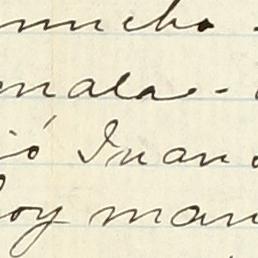 mucho
mala -
ió Juan
hoy man